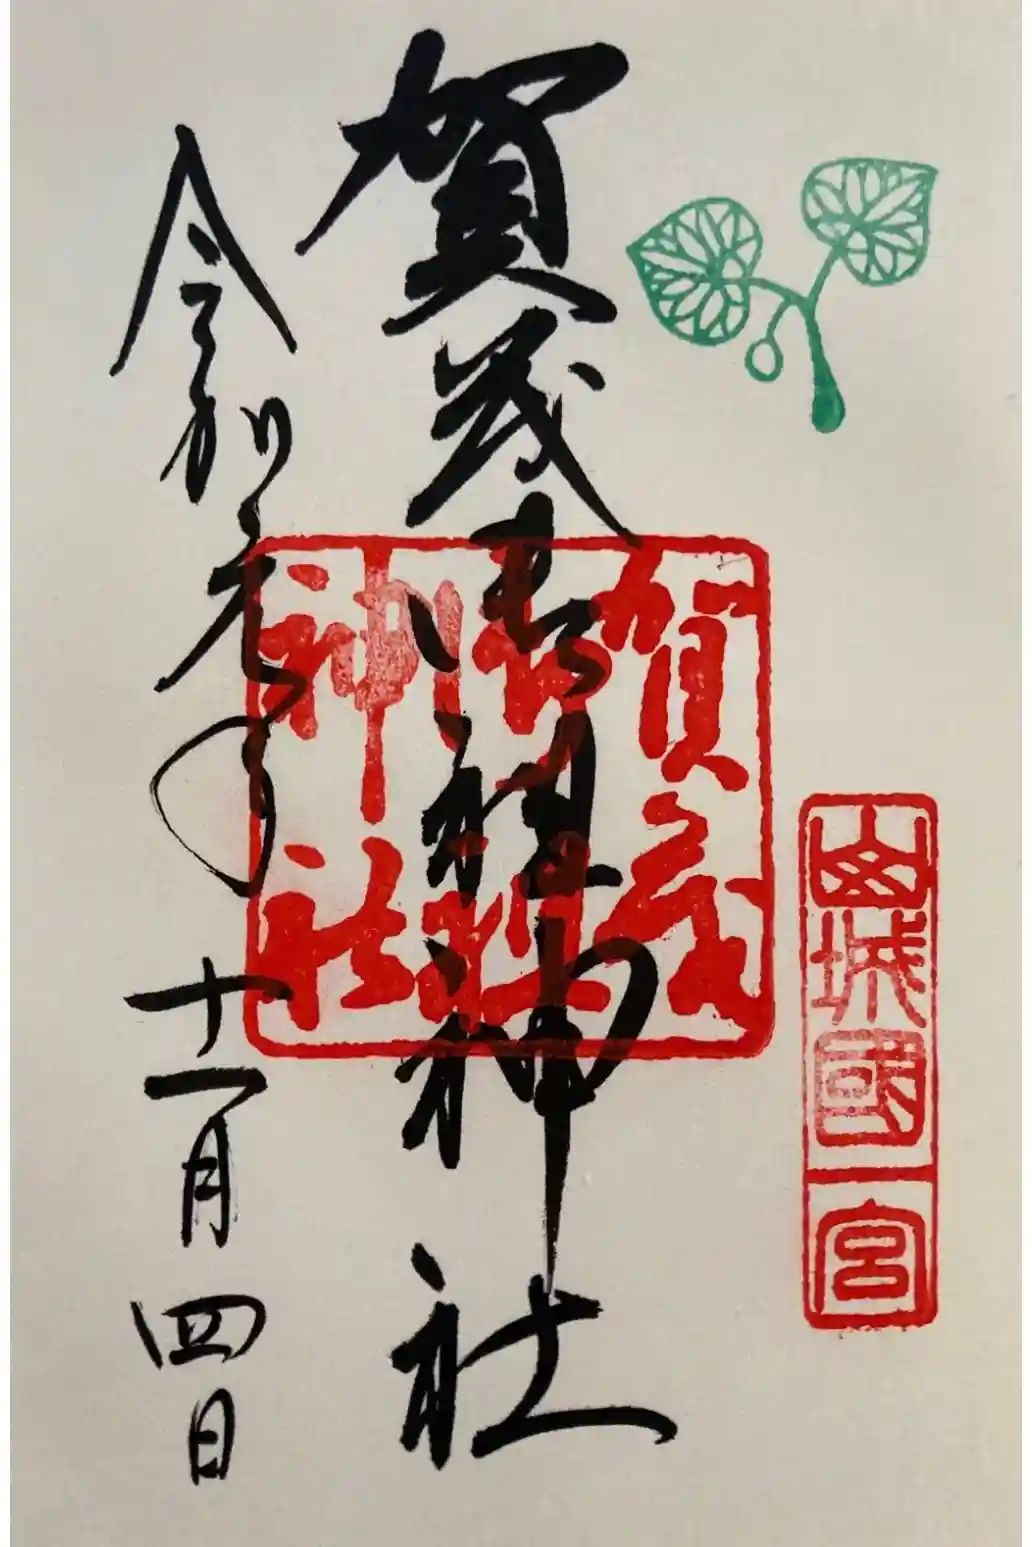 山城國一宮
賀茂御祖神社
賀茂
御祖
神社
令和元年十一月四日